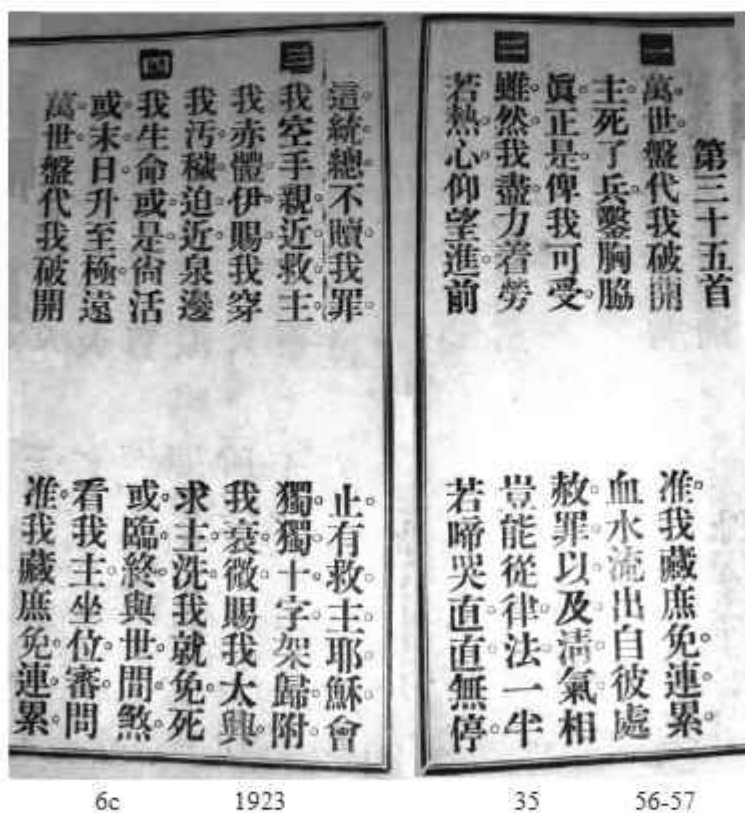 第三十五首
一 萬世盤代我破開 准我藏庶免連累
主死了兵鑿胸脇 血水流出自彼處
眞正是俾我可受 赦罪以及清氣相
二 雖然我盡力着勞 豈能從律法一半
若熱心仰望進前 若啼哭直直無停
這統總不贖我罪 止有救主耶穌會
三 我空手親近救主 獨獨十字架歸附
我赤體伊賜我穿 我衰微賜我太興
我汚穢迫近泉邊 求主洗我就免死
四 我生命或是尙活 或臨終與世間煞
或末日升至極遠 看我主坐位審問
萬世盤代我破開 准我藏庶免連累
6c 1923 35 56-57